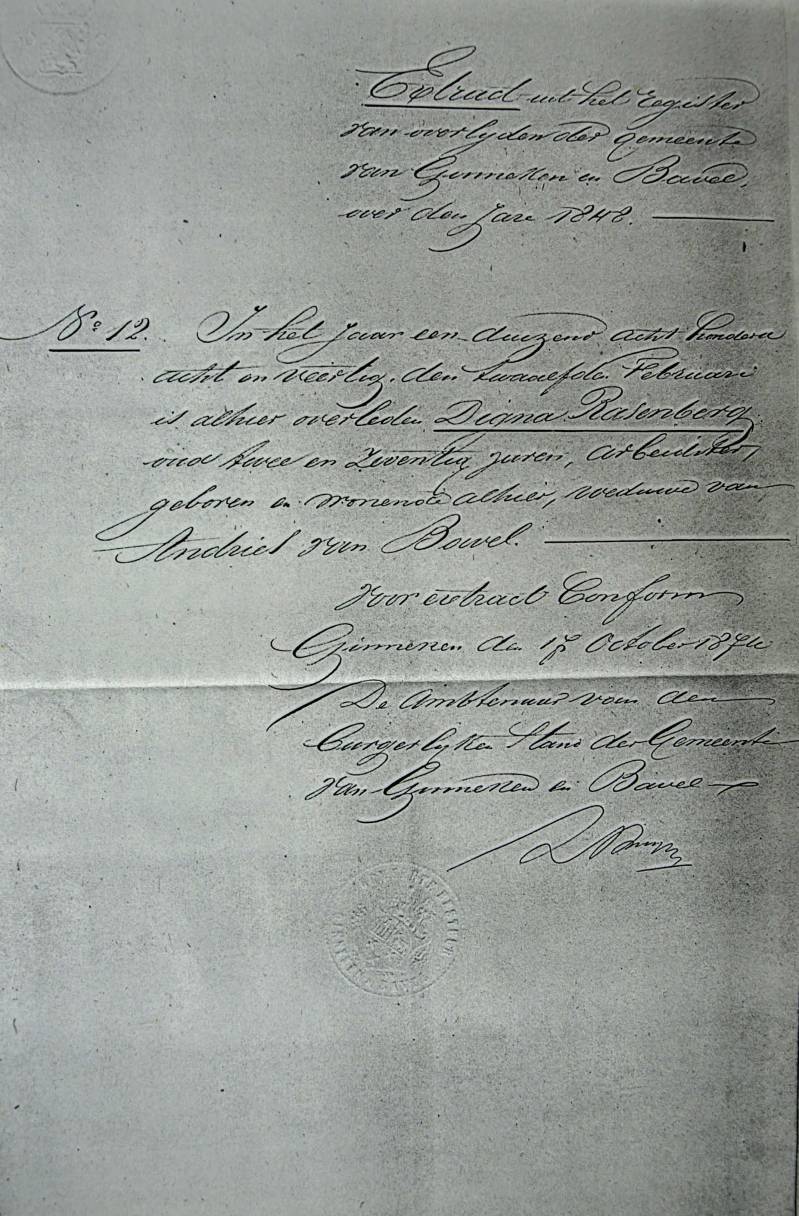 Extract uit het register
van overlyden der gemeente
van Ginneken en Bavel,
over den jare 1848.
No 12. In het jaar een duizend acht honderd
acht en veertig, den twaalfden Februari
is alhier overleden Digna Rasenberg
oud twee en zeventig jaren, arbeidster,
geboren en wonende alhier, weduwe van
Andries van Bavel.
Voor extract Conform
Ginneken den 17 October 1874
De Ambtenaar van den
burgerlyken Stand der Gemeente
van Ginneken en Bavel